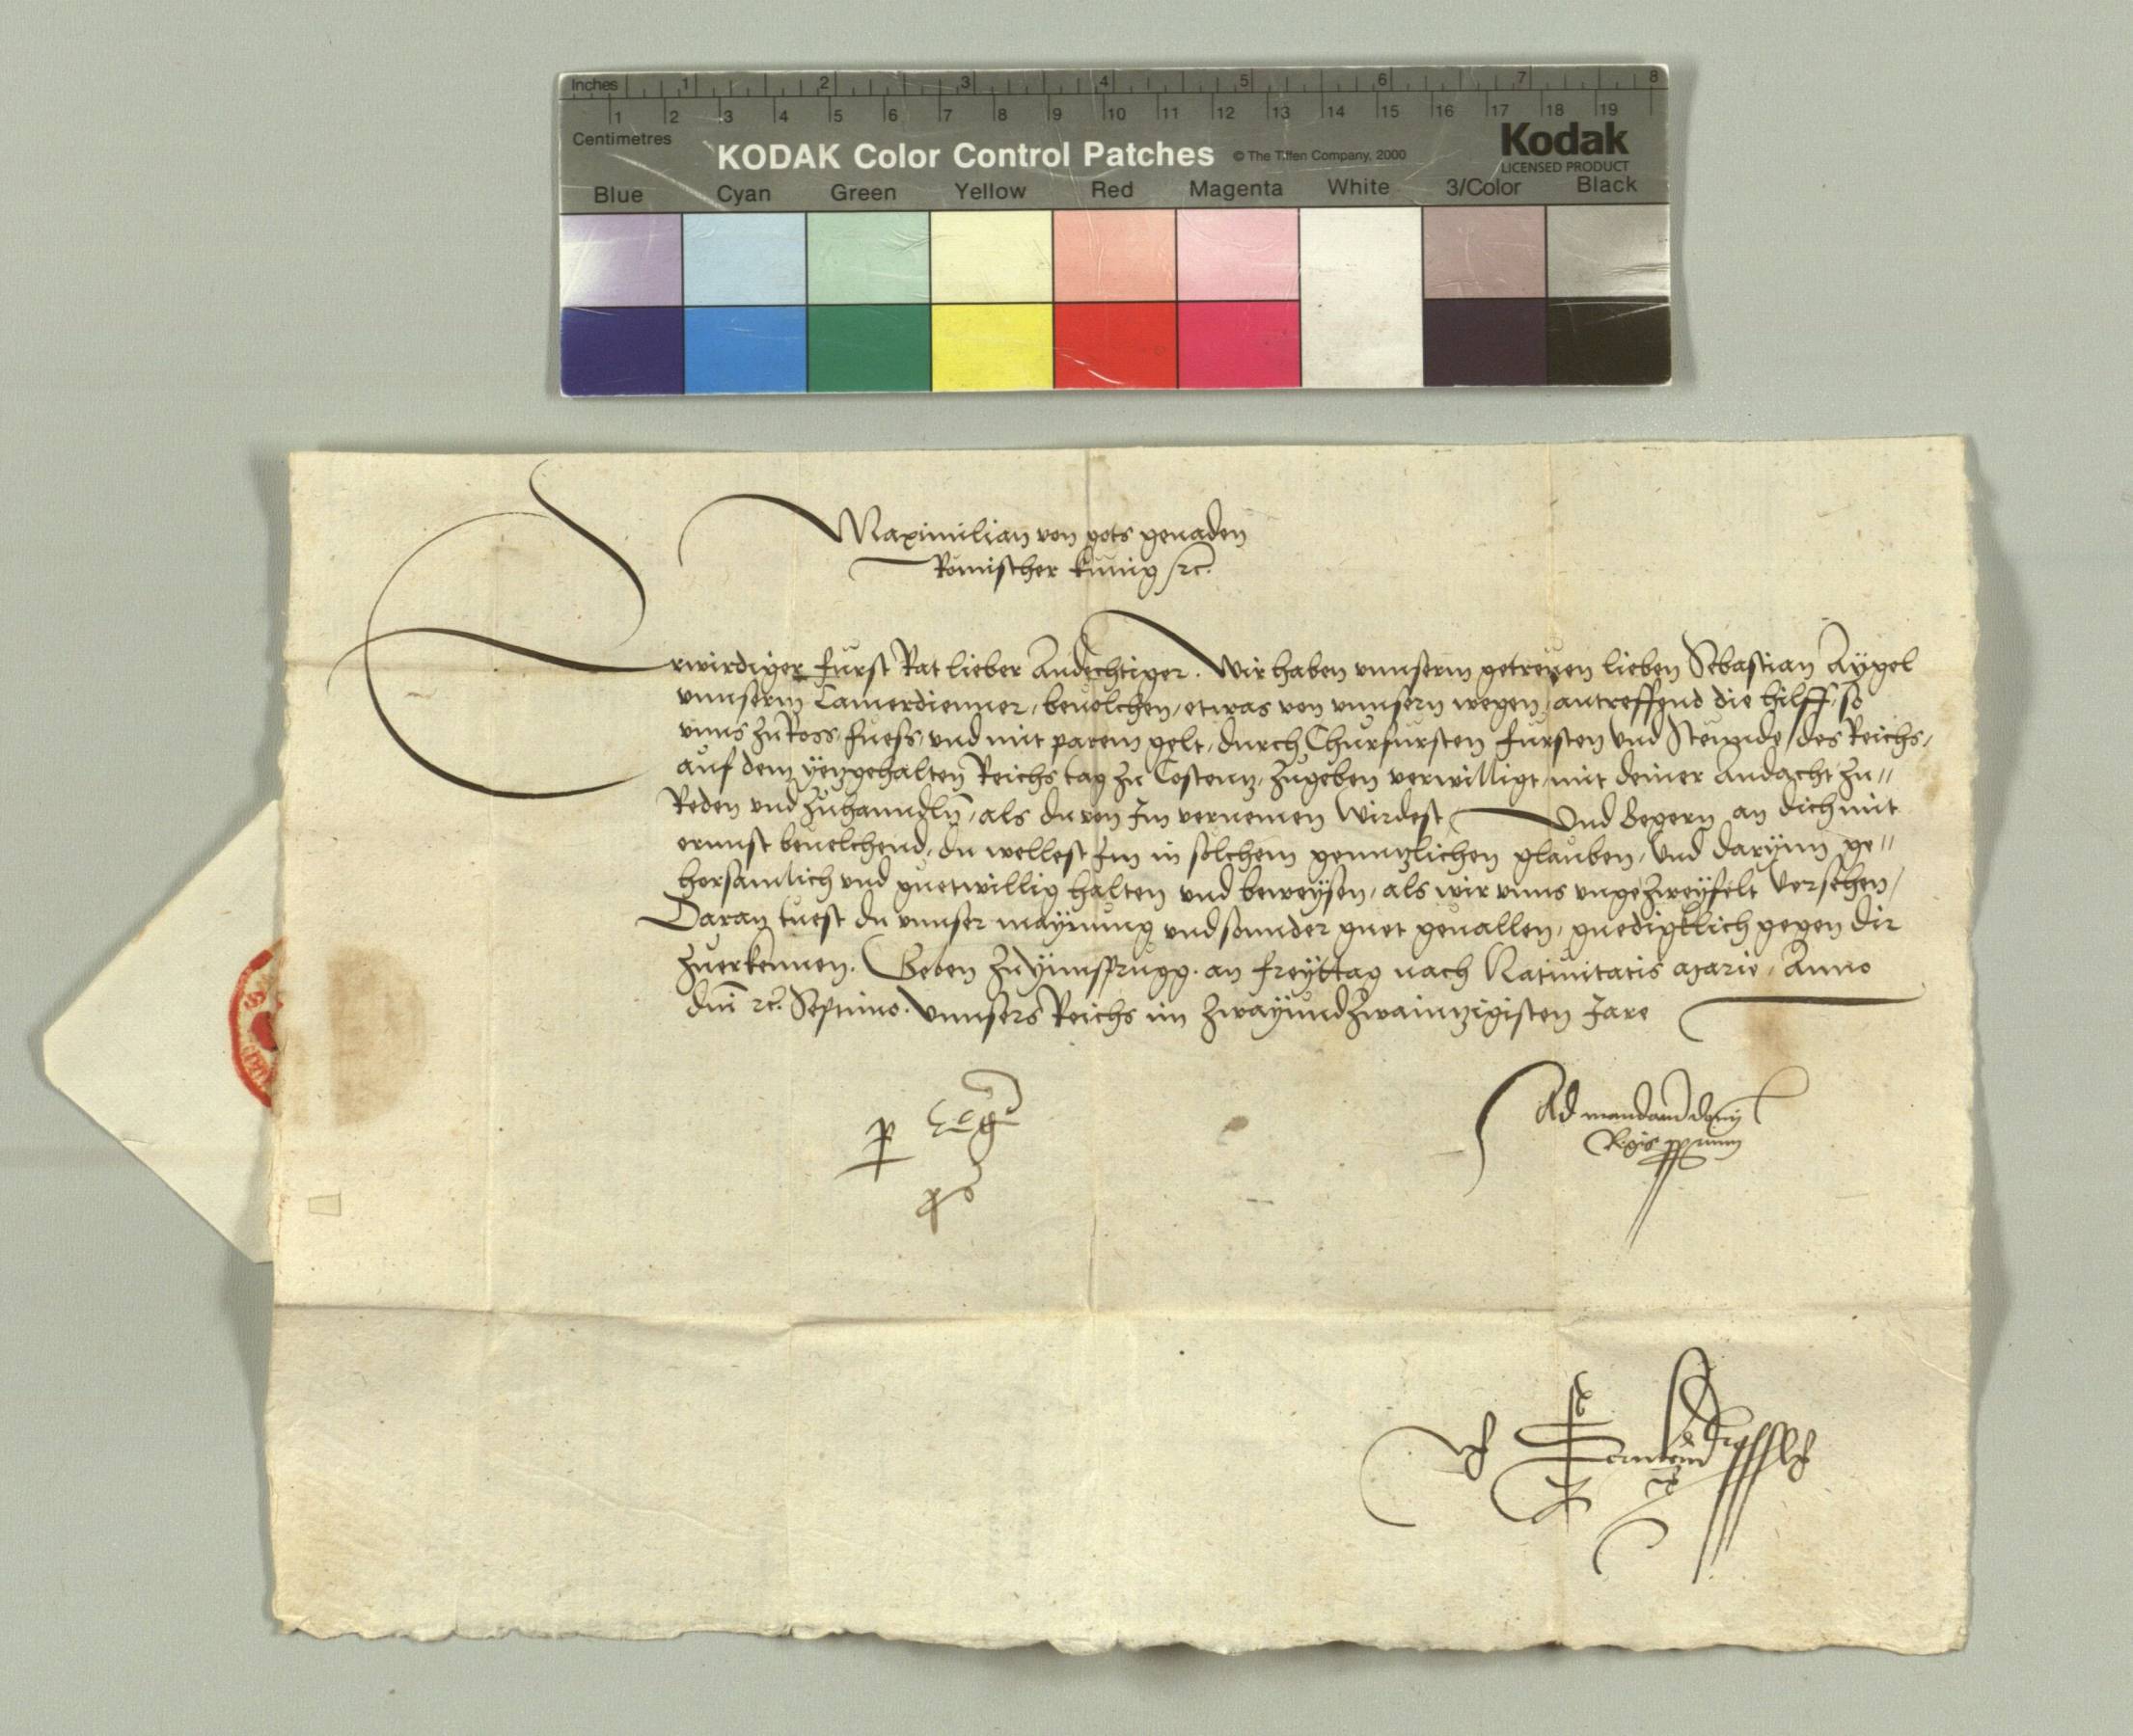 Inches 1 2 3 4 5 6 7 8
1 2 3 4 5 6 7 8 9 10 11 12 13 14 15 16 17 18 19
Centimetres
KODAK Color Control Patches © The Tiffen Company, 2000 Kodak
LICENSED PRODUCT
Blue Cyan Green Yellow Red Magenta White 3/Color Black
Maximilian von gots genaden
Römischer kunig etc.
Erwirdiger fürst Rat lieber Andechtiger. Wir haben unnserm getrewen lieben Sebastian Aygel
unnserm Camerdienner, bevolchen, etwas von unnsern wegen, antreffend die hilff, so
unns zu Ross, fuess, und mit parem gelt, durch Churfursten fürsten und Stennde des Reichs,
auf dem yetzgehalten Reichs tag zu Costenntz, zugeben verwilligt, mit deiner Andacht zu„
Reden und zuhanndln̄, als du von Im vernemen wirdest. Und Begern an dich mit
ernnst bevelchend, du wellest Im in solchem genntzlichen glauben, und darynn ge„
horsamlich und guetwillig halten und beweysen, als wir unns ungezweyfelt versehen,
Daran tuest du unnser maynung und sonnder guet gevallen, gnedigklich gegen dir
zuerkennen. Geben zu Ynnsprugg. an freyttag nach Nativitatis Marie, Anno
dnī etc. Septimo. Unnsers Reichs im zwayundzwaintzigisten Jare
p Reg
ps
Ad mandatū dom̄
Regis pprium